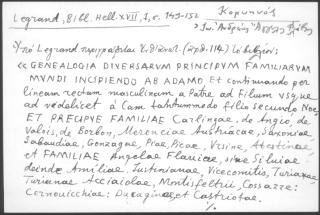 Legrand, Bibl. Hell. XVII, I, σ. 149-152
Κορωνιός
> Ἰω. "Ἀνδρέας"
Ὑπό Legrand περιγράφεται
« GENEALOGIA DIVERSARVM PRINCIPVM FAMILIARVM
MVNDI INCIPIENDO AB ADAMO Et continuando per
lineam rectam masculineam a Patre ad Filium vsque
ad Cam tantummodo filio secundo Noe,
ET FAMILIAE Carlingae, de Angio, de
Valois, de Borbon, Merouciae Austriacae, Saxoniae,
Sabaudiae, Gonzagae, Piae, Picae, Vrsine, Atestinae,
et FAMILIAE Angelae Flauiae, siue Siluiae
deinde Amiliae, Iustinianae, Vicecomitis, Turianae,
Turianae Acciaiolae, Montisfeltrii, Cossazze:
Cernouicchiae: Ducaginae, et Castriotae.